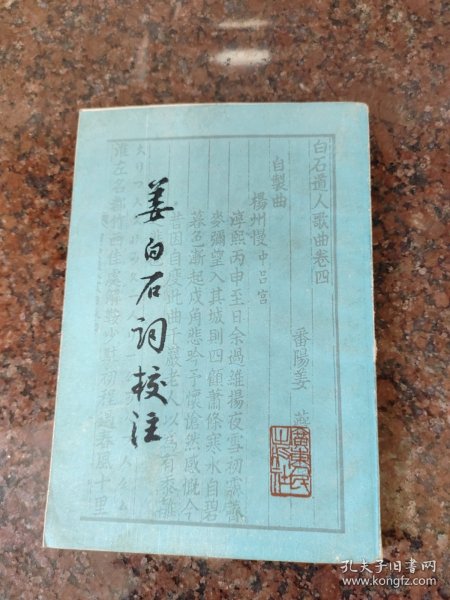 姜白石词校注
白石道人歌曲卷四
番陽姜
自製曲
揚州慢中呂宮
淳熙丙申至日余過維揚夜雪初霽薺
麥彌望入其城則四顧蕭條寒水自碧
暮色漸起戍角悲吟予懷愴然感慨今
昔因自度此曲千巖老人以爲有黍離
淮左名都竹西佳處解鞍少駐初程過春風十里
廣東人民出版社
孔夫子旧书网
www.kongfz.com